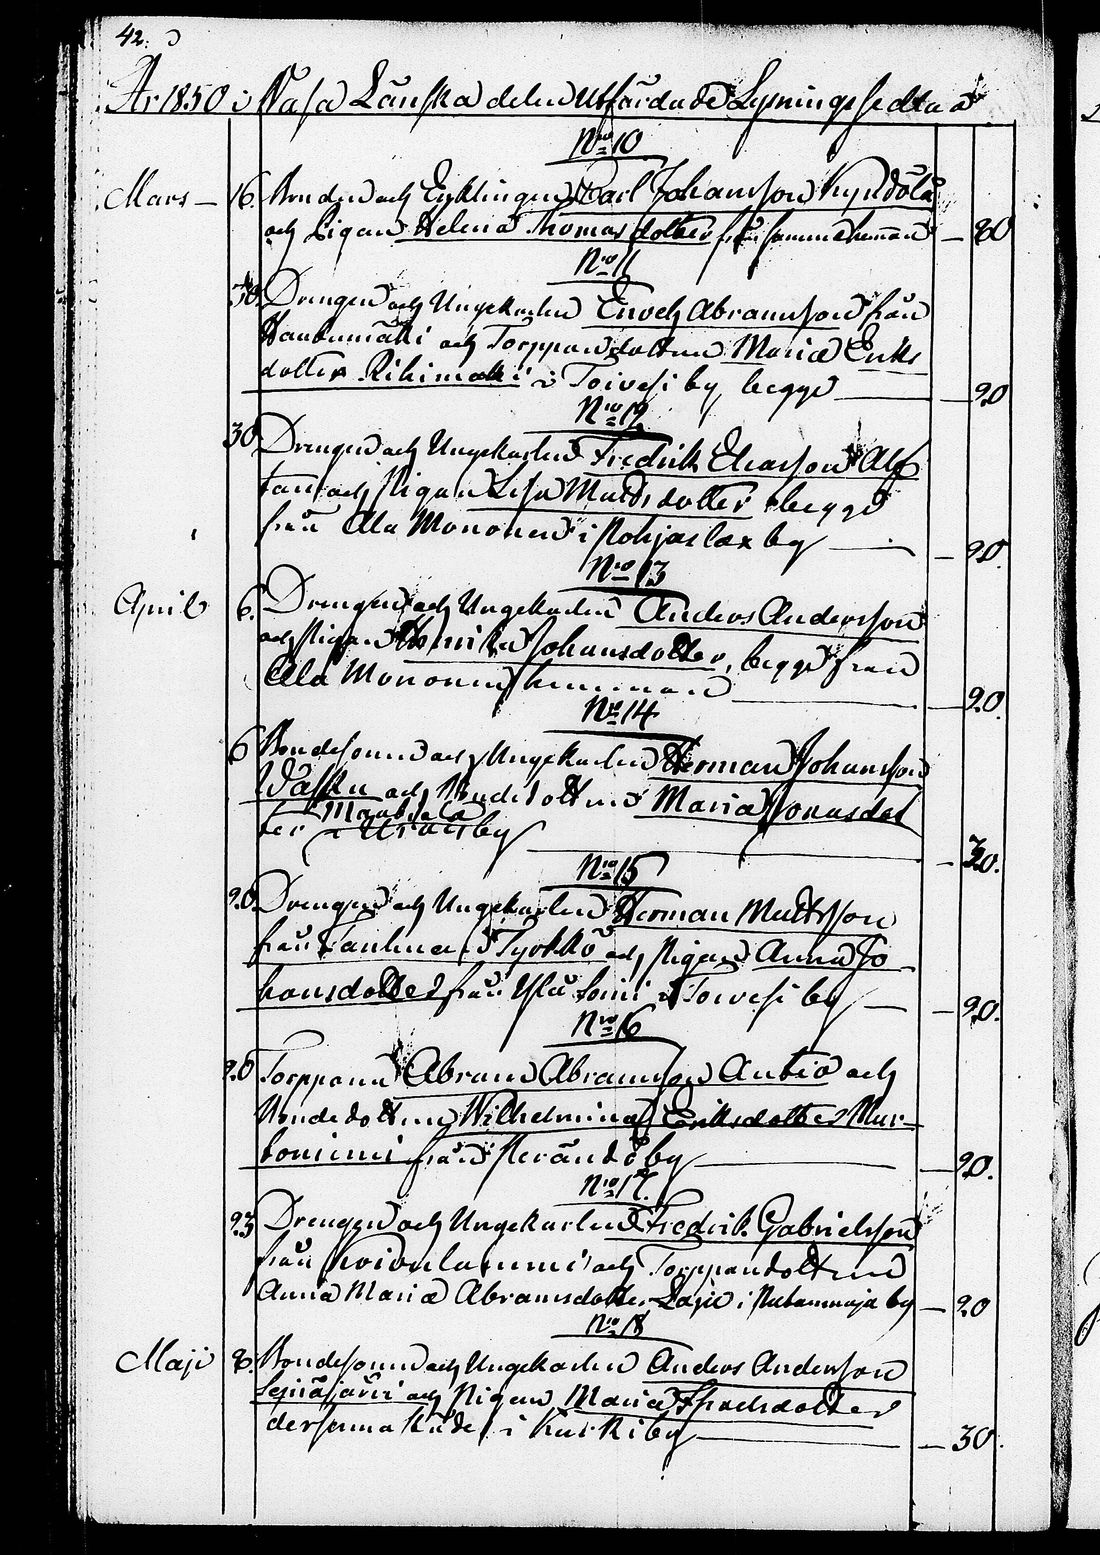 42.
År 1850 i Vasa Länska delen utfärdade Lysningssedlar
Nro 10
Mars 16 Bonden och Enklingen Carl Johansson Kyndölä
och Pigan Helena Thomasdotter från samma hemman — 80
Nro 11
30. Drengen och Ungekarlen Enoch Abramsson från
Hautamäki och Torppare dottren Maria Eriks
dotter Rihimäki i Toivesi by begge — 20
Nro 12
30. Drengen och Ungekarlen Fredrik Eliasson Alf
tan och Pigan Lisa Mattsdotter begge
från Ala Mononen i Pohjaslax by — 20.
Nro 13
April 6. Drengen och Ungekarlen Anders Andersson
och Pigan Henrika Johansdotter, begge från
Ala Mononen hemman — 20.
Nro 14
6 Bondesonen och Ungekarlen Herman Johansson
och Bondedottren Maria Jonasdot
ter i by — 30.
Nro 15
20. Drengen och Ungekarlen Herman Mattsson
från i och Pigan Anna Jo
hansdotter från i Toivesi by — 20.
Nro 16
20 Torpparen Abram Abramsson Antio och
Bondedottren Wilhelmina Eriksdotter Mur
toniemi från Perändö by — 20.
Nro 17.
23 Drengen och Ungekarlen Fredrik Gabrielsson
från Koivulammi och Torppardottren
Anna Maria Abramsdotter i by — 20
Nro 18
Maji 8. Bondesonen och Ungekarlen Anders Andersson
och Pigan Maria
dersammastädes i Kurki by — 30.